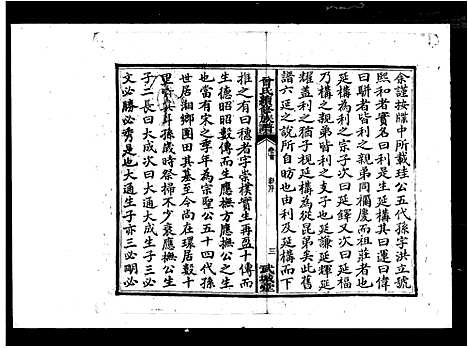 余謹按牒中所載珪公五代孫字洪立號
熙和者實名曰利三子延構其一曰運曰偉
曰駢者皆利之親弟同欄慶而祖莊者也
延構為利之宗子次曰延鐸又次曰延福
乃構之親弟皆利之支子也延謙延輝延
耀蓋利之猶子視延構為從昆弟矣此舊
譜六延之說所自昉也由利及延構而下
曾氏續修族譜
卷首
三
武城堂
推之有曰穗者字崇樸實生再盈十傳而
生德昭昭數傳而生應撫方應撫公之生
也當有宋之季年為宗聖公五十四代孫
世居湘鄉團田其基至今尚在環居數十
里 共斗孫歲時祭掃不少衰應撫公生
子二長曰大成次曰大通大成生子三必
文必勝必秀是也大通生子亦三必明必